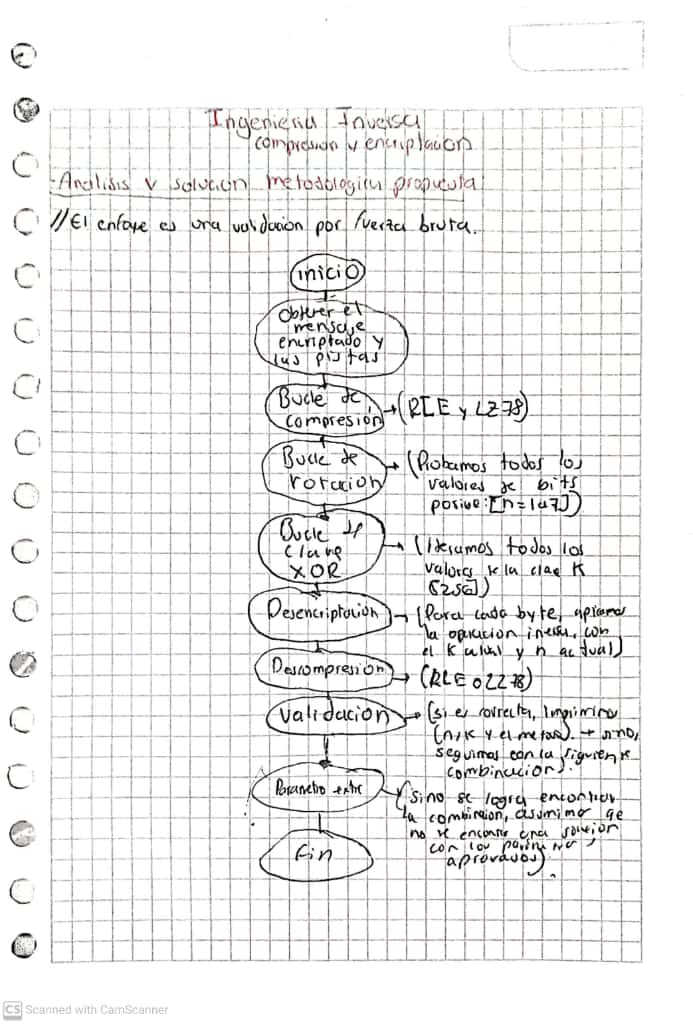 Ingenieria Inversa
compresion y encriptacion
- Analisis y solucion metodologica propuesta
// El enfoque es una validacion por fuerza bruta.
inicio
Obtener el
mensaje
encriptado y
las pistas
Bucle de
compresión
(RLE y LZ78)
Bucle de
rotacion
(Probamos todos los
valores de bits
[n=1a7])
Bucle de
clave
XOR
(Iteramos todos los
valores de la clave K
[256])
Desencriptación
(Para cada byte, aplicamos
la operacion inversa, con
el K actual y n actual)
Descompresión
(RLE o LZ78)
validacion
(si es correcta, Imprimimos
(n, K y el metodo) → sino,
seguimos con la siguiente
combinacion).
Parametro extra
(sino se logra encontrar
la combinacion, asumimos qe
no se encontro una solucion
con los
Fin
CS Scanned with CamScanner